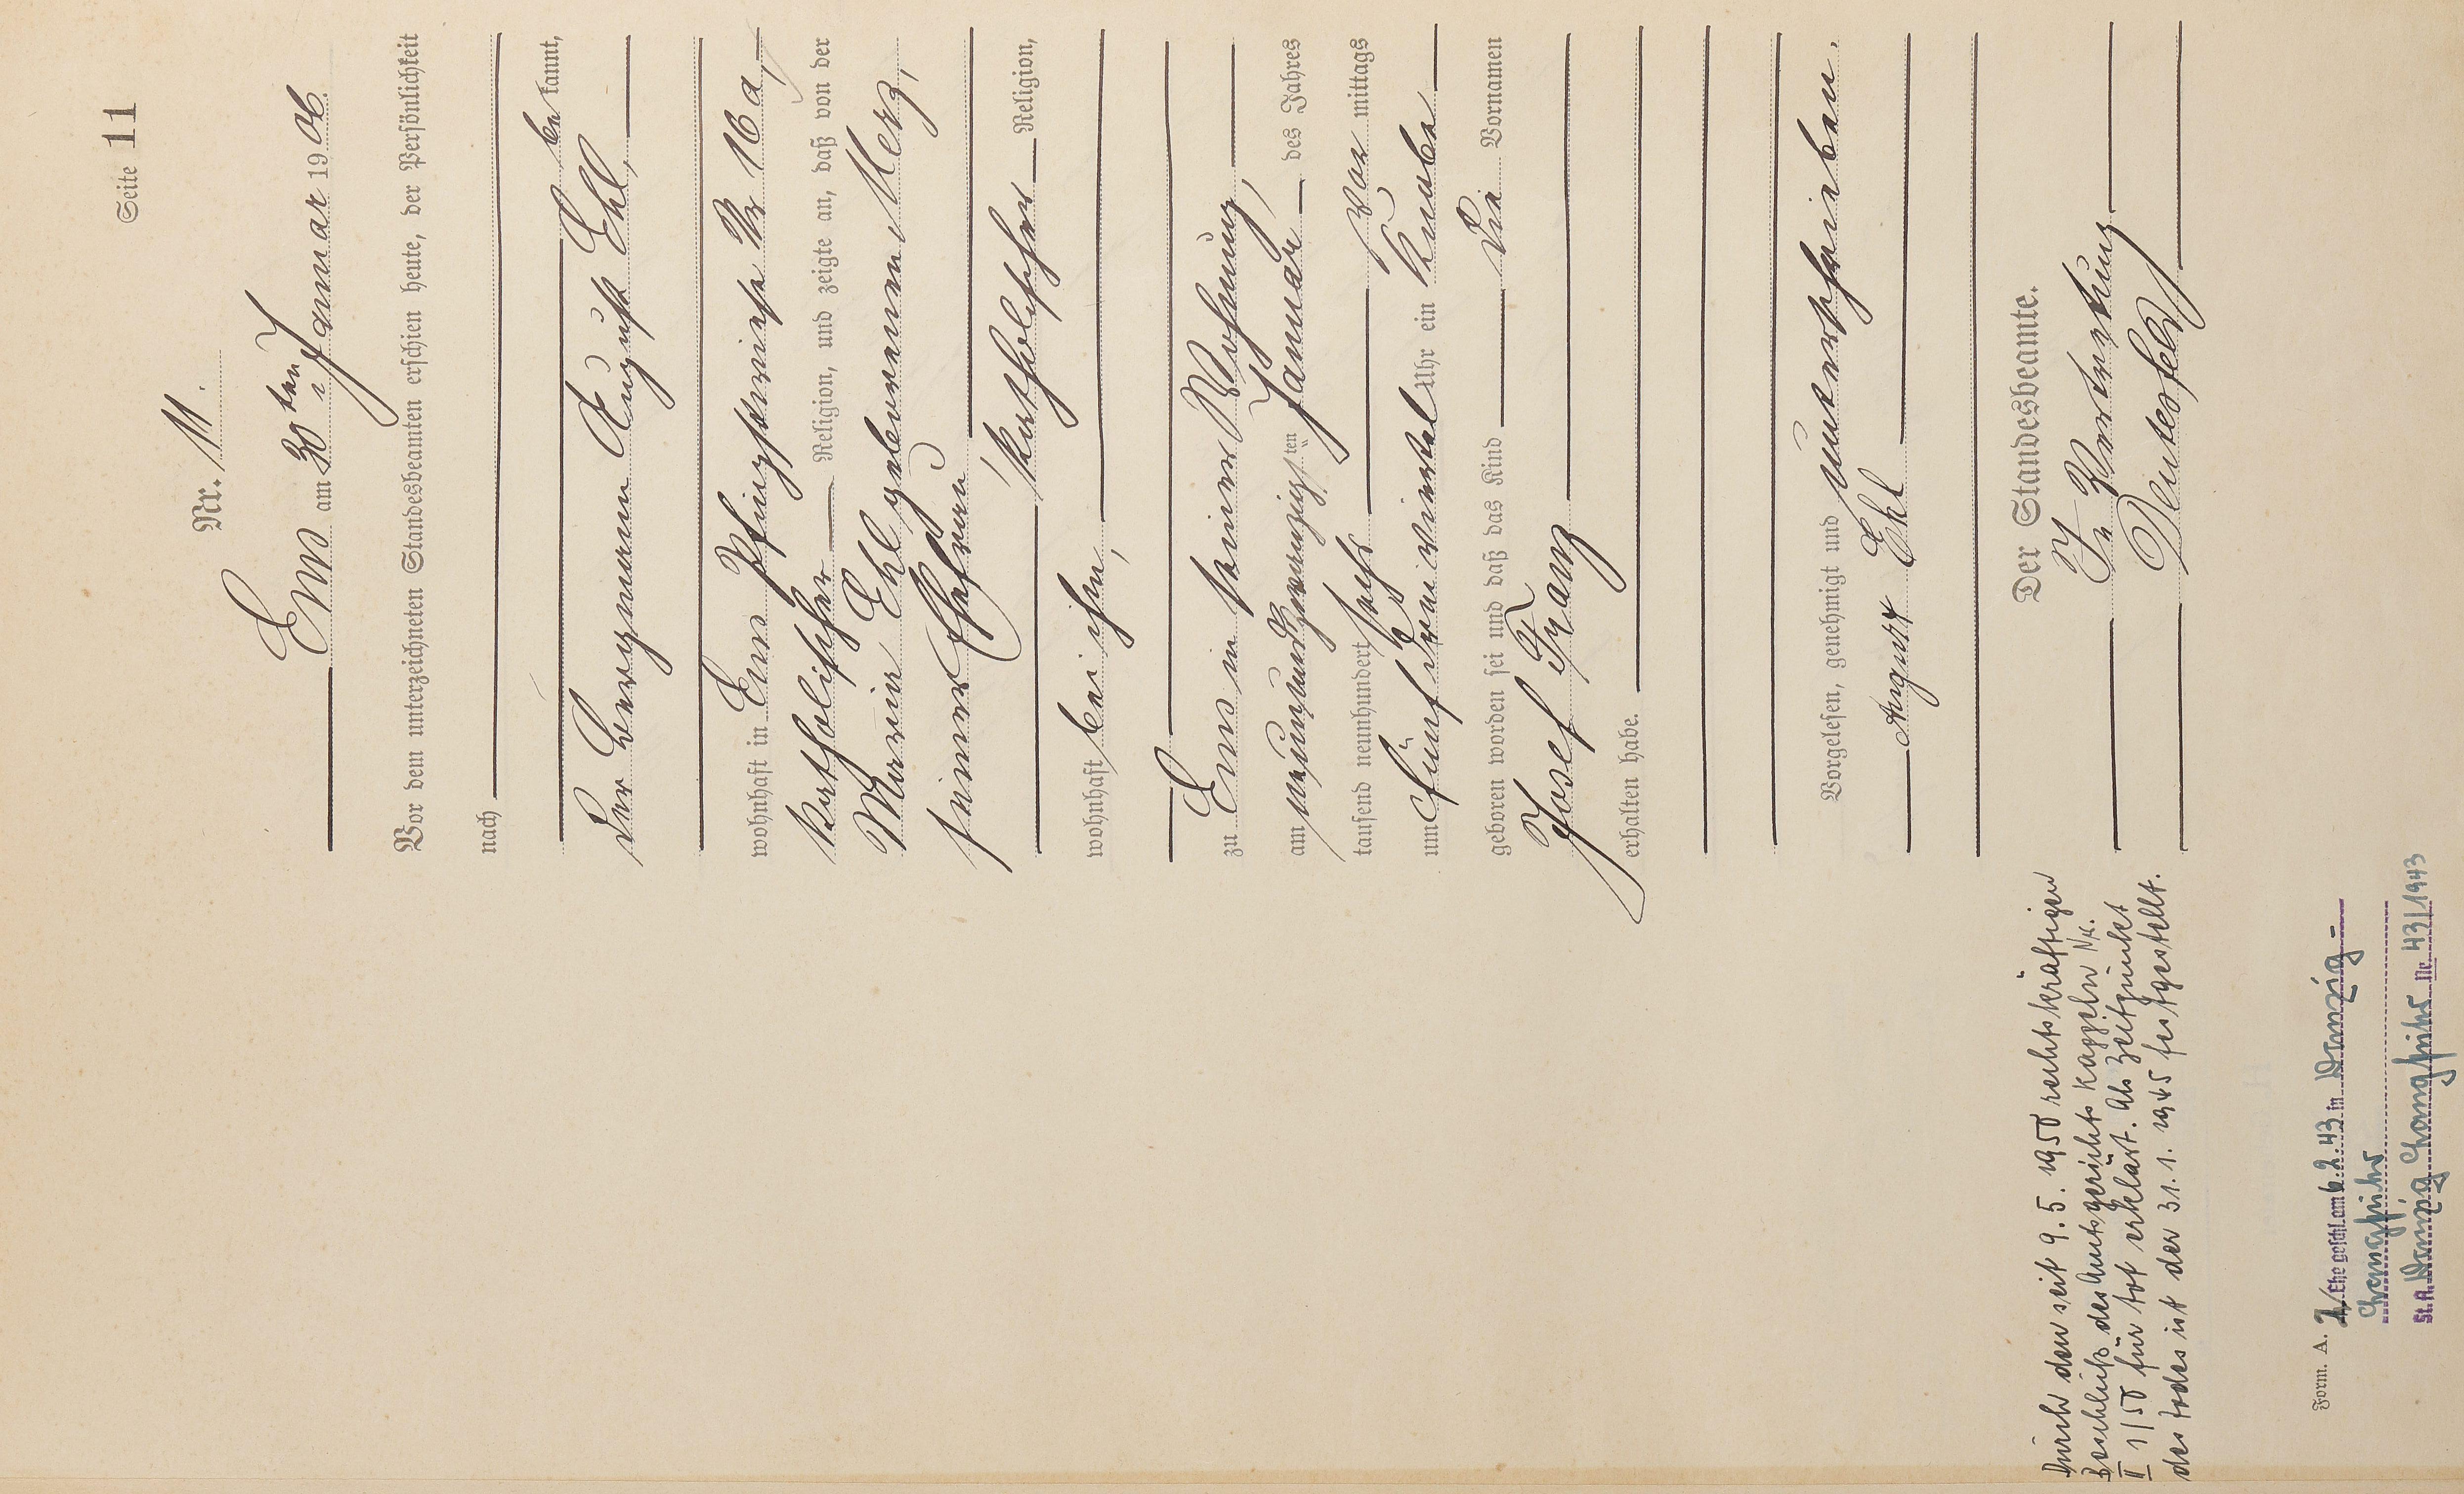 Seite 11
Nr. 11.
Ems am 30ten Januar 1906.
Vor dem unterzeichneten Standesbeamten erschien heute, der Persönlichkeit
nach
bekannt,
der Bergmann August Ehl,
wohnhaft in Ems Pfingstwiese Nr 16 a,
katholischer Religion, und zeigte an, daß von der
Maria Ehl geborenen Merz,
seiner Ehefrau
katholischer Religion,
wohnhaft bei ihm,
zu Ems in seiner Wohnung,
am neunundzwanzigsten Januar des Jahres
tausend neunhundert sechs vor mittags
um fünf drei viertel Uhr ein Knabe
geboren worden sei und daß das Kind die Vornamen
Josef Franz
erhalten habe.
Vorgelesen, genehmigt und unterschrieben.
August Ehl
Der Standesbeamte.
In Vertretung
Deutesfeld
Durch den seit 9.5.1950 rechtskräftigen
Beschluß des Amtsgerichts Kappeln Nr.
II 1/50 für tot erklärt. Als Zeitpunkt
des Todes ist der 31.1.1945 festgestellt.
Form. A.
Ehe geschl. am 6.2.43 in Danzig-
Langfuhr
St. A. Danzig Langfuhr Nr. 43/1943